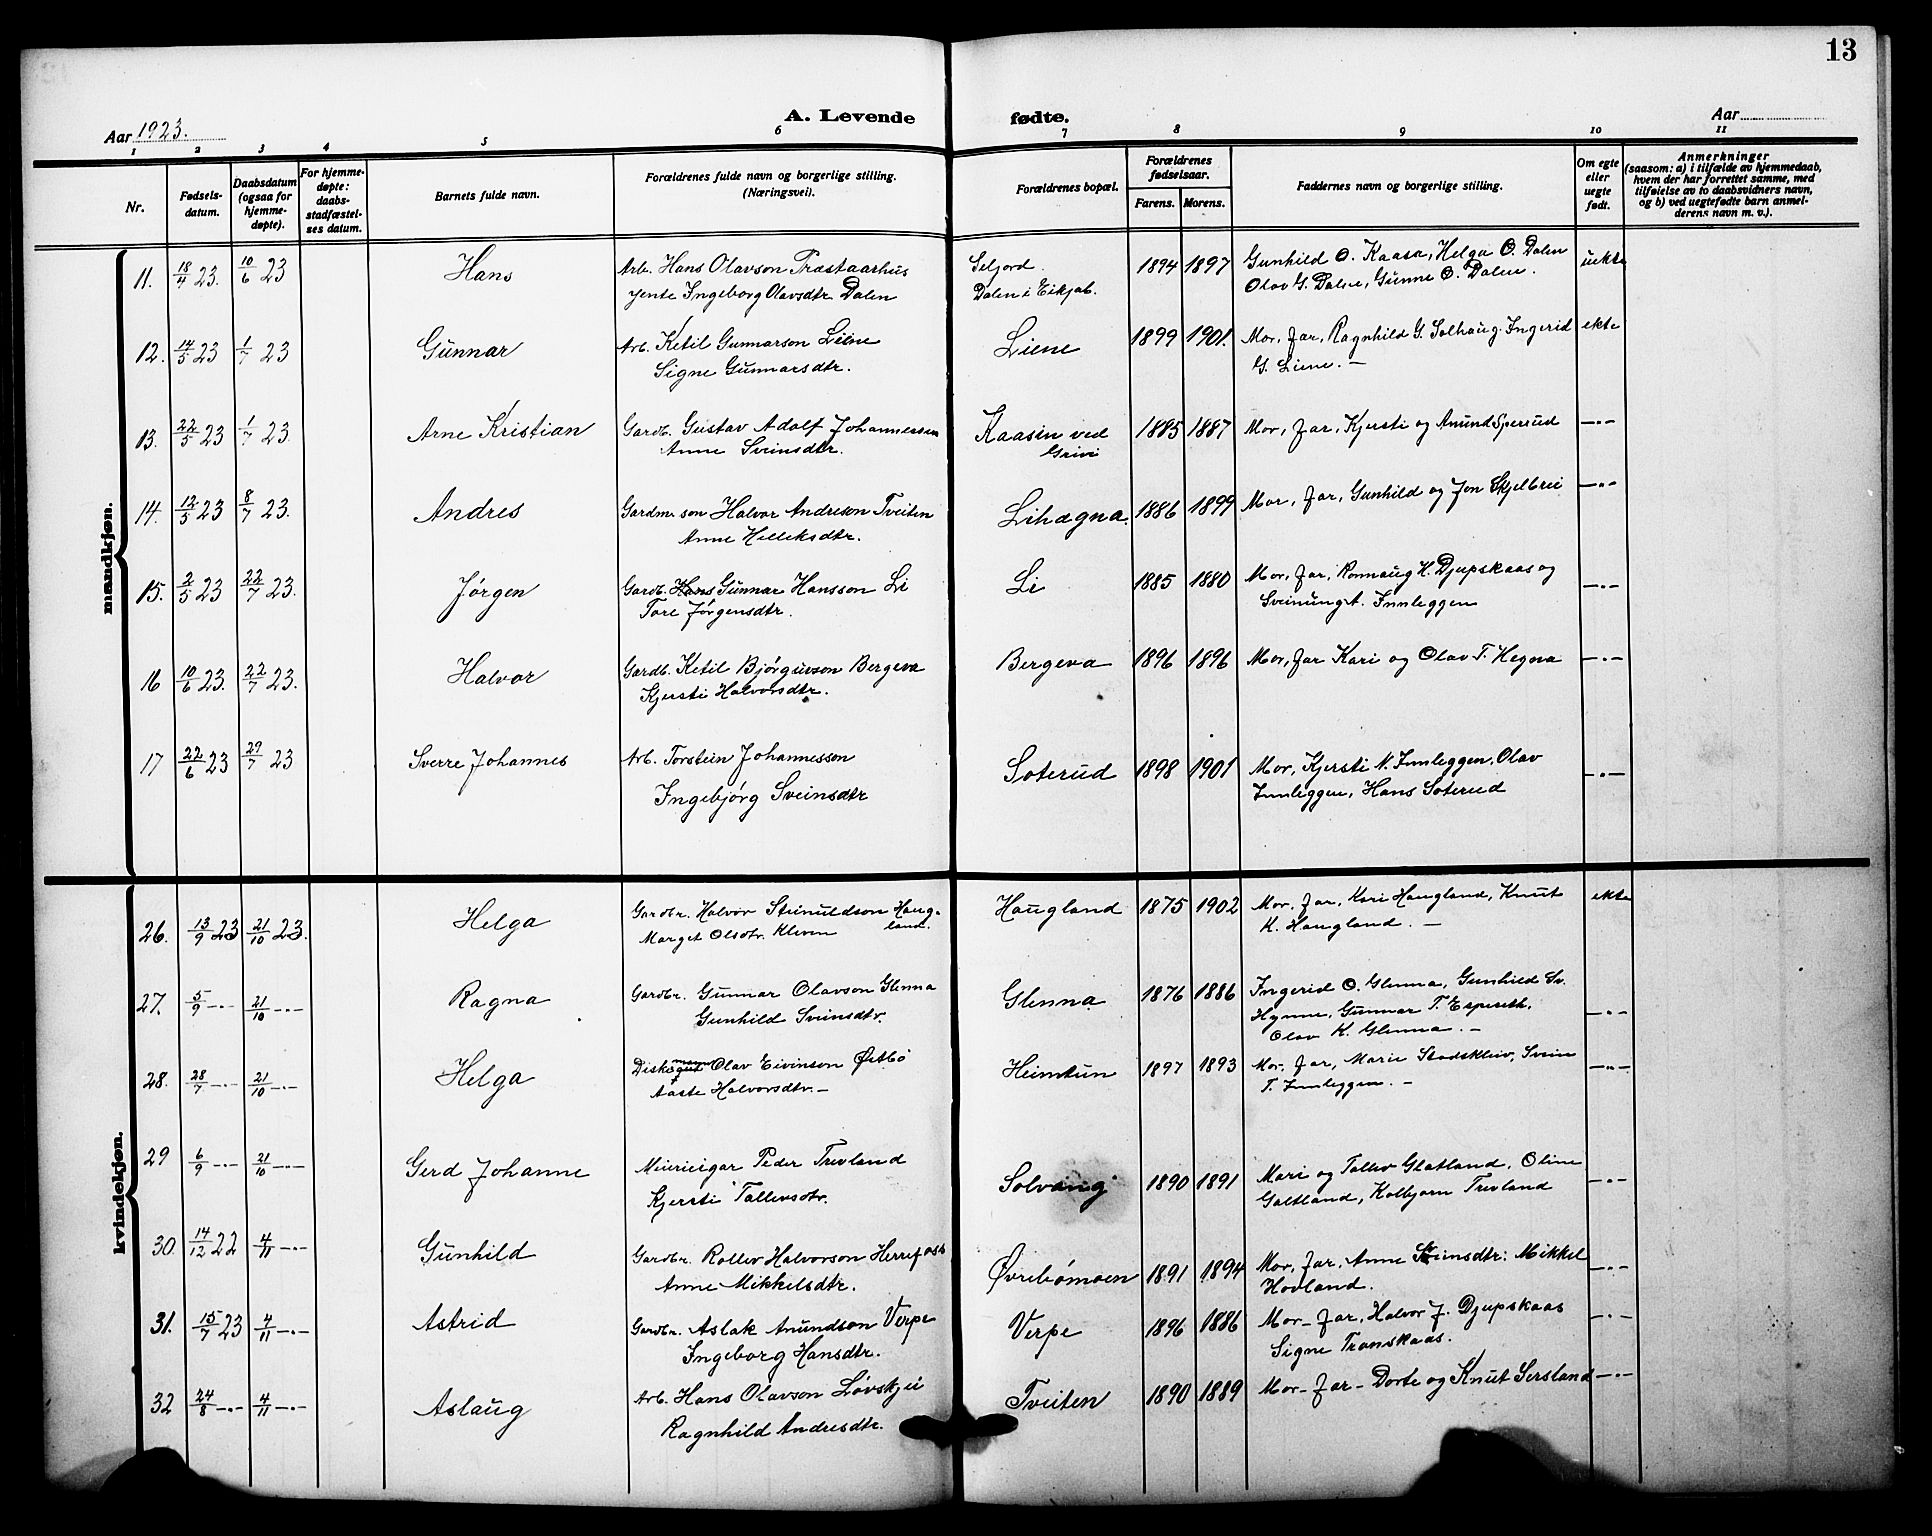 13
Aar 1923. A. Levende fødte. Aar
1 2 3 4 5 6 7 8 9 10 11
Nr. Fødsels-datum. Daabsdatum (ogsaa for hjemme-døpte). For hjemme-døpte: daabs-stadfæstel-ses datum. Barnets fulde navn. Forældrenes fulde navn og borgerlige stilling. (Næringsvei). Forældrenes bopæl. Forældrenes fødselsaar. Farens. Morens. Faddernes navn og borgerlige stilling. Om egte eller uegte født. Anmerkninger (saasom: a) i tilfælde av hjemmedaab, hvem der har forrettet samme, med tilføielse av to daabsvidners navn, og b) ved uegtefødte barn anmel-derens navn m. v.).
mandkjøn.
11. 18/4 23. 10/6 23 Hans Arb. Hans Olavson Præstaarhus Seljord. 1894 1897 Gunhild O. Kaasa, Helga O. Dalen uekte
Jente Ingeborg Olavsdtr Dalen Dalen i Eikjab. Olav G. Dalen, Gunne O. Dalen.
12. 14/5 23 1/7 23 Gunnar Arb. Ketil Gunnarson Liene Liene 1899 1901. Mor, Far, Ragnhild G. Solhaug. Ingerid ekte
Signe Gunnarsdtr. G. Liene. —
13. 22/5 23 1/7 23. Arne Kristian Gardb. Gustav Adolf Johannessen Kaasin ved 1885 1887 Mor, Far, Kjersti og Anund Sperud —.—
Anne Sveinsdtr. Grivi
14. 12/5 23 8/7 23. Andres Gardm. son Halvor Andreson Tveiten Lihægna 1886 1899 Mor, Far, Gunhild og Jon Skjelbrei —.—
Anne Helleksdtr.
15. 2/5 23 22/7 23. Jørgen Gardb. Hans Gunnar Hansson Li Li 1885 1880 Mor, Far, Ronnaug H. Djupskaas og —.—
Tore Jørgensdtr. Sveinung T. Innleggen
16 10/6 23. 22/7 23. Halvor Gardb. Ketil Bjørguvson Bergeva Bergeva 1896 1896 Mor, Far Kari og Olav T. Hegna —.—
Kjersti Halvorsdtr.
17 22/6 23 29/7 23 Sverre Johannes Arb. Torstein Johannesson Soterud 1898 1901 Mor, Kjersti N. Innleggen, Olav —.—
Ingebjørg Sveinsdtr Innleggen, Hans Soterud
kvindekjøn.
26. 13/9 23 21/10 23. Helga Gardbr. Halvor Steinuldson Haug- Haugland 1875 1902 Mor, Far, Kari Haugland, Knut ekte
land.
Marget Olsdtr. Kleven K. Haugland. —
27. 5/9 —.— 21/10 —.— Ragna Gardbr. Gunnar Olavson Glenna Glenna 1876 1886 Ingerid O. Glenna, Gunhild Sv. —.—
Gunhild Sveinsdtr. Hynne, Gunnar T. Espeseth,
Olav K. Glenna. —
28. 28/7 —.— 21/10 —.— Helga Olav Eivinson Østbö Heimtun 1897 1893 Mor, Far, Marie Stadskleiv, Svein —.—
Aaste Halvorsdtr. — T. Innleggen. —
29 6/9 —.— 21/10 —.— Gerd Johanne Meierieigar Peder Trevland Solvang 1890 1891 Mari og Tallev Glatland, Oline —.—
Kjersti Tallevsdtr. Galtland, Kolbjørn Trevland
30. 14/12 22 4/11 —.— Gunhild Gardbr. Rollev Halvorson Herrefoss Øvrebømoen 1891 1894 Mor, Far, Anne Steinsdtr: Mikkel —.—
Anne Mikkelsdtr. Hovland.
31. 15/7 23 4/11 —.— Astrid Gardbr. Aslak Anundson Verpe Verpe 1896 1886 Mor – Far, Halvor J. Djupskaas —.—
Ingeborg Hansdtr. Signe Transkaas.
32 24/8 —.— 4/11 —.— Aslaug Arb. Hans Olavson Løvskjei Tveiten 1890 1889 Mor – Far – Dorte og Knut Sersland —.—
Ragnhild Andresdtr.